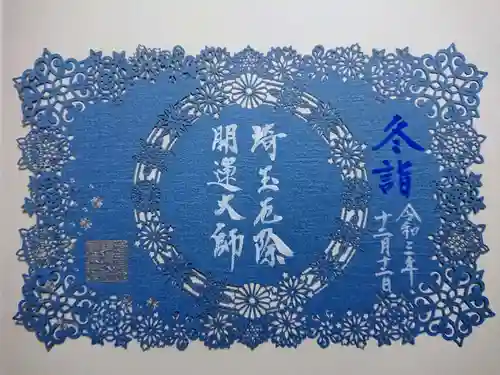 冬詣
令和二年
十二月十二日
埼玉厄除
開運大師